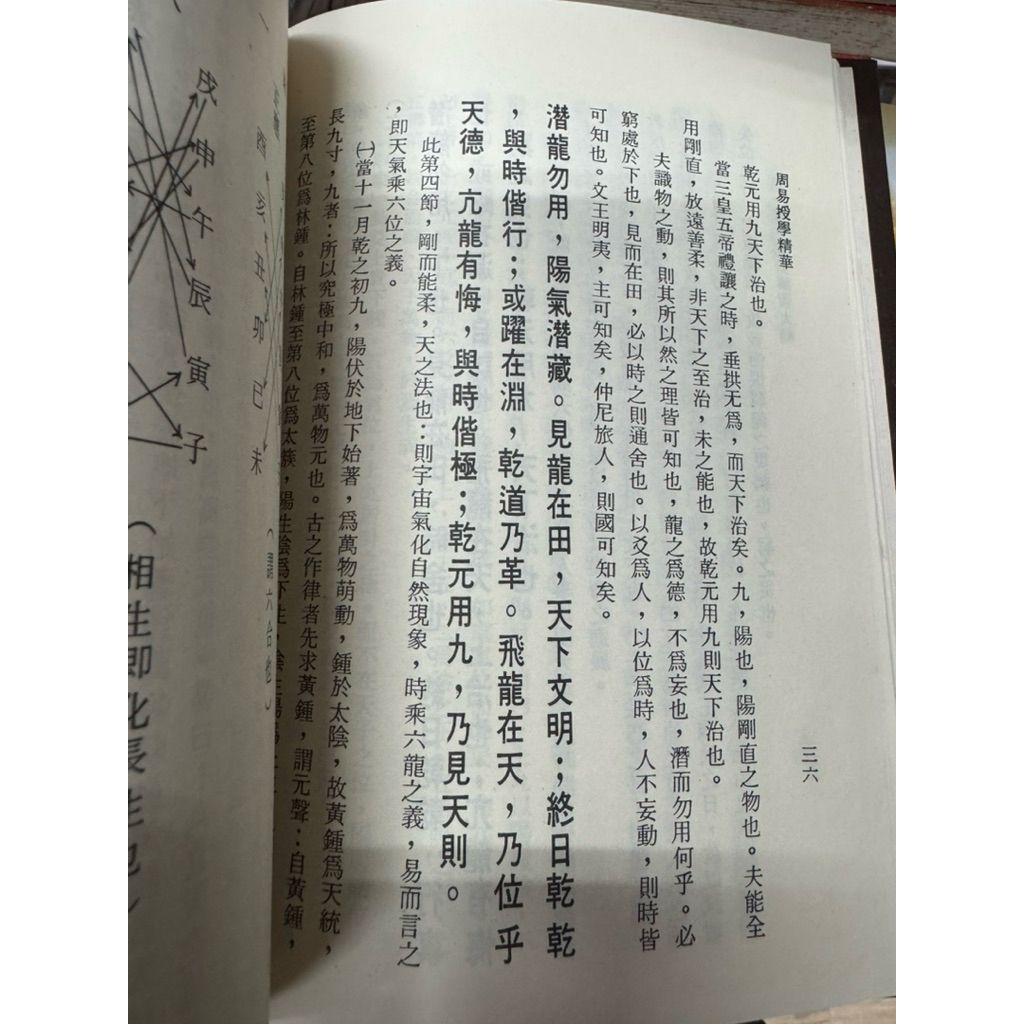 周易授學精華
三六
乾元用九天下治也。
當三皇五帝禮讓之時，垂拱无爲，而天下治矣。九，陽也，陽剛直之物也。夫能全
用剛直，放遠善柔，非天下之至治，未之能也，故乾元用九則天下治也。
夫識物之動，則其所以然之理皆可知也，龍之爲德，不爲妄也，潛而勿用何乎。必
窮處於下也，見而在田，必以時之則通舍也。以爻爲人，以位爲時，人不妄動，則時皆
可知也。文王明夷，主可知矣，仲尼旅人，則國可知矣。
潛龍勿用，陽氣潛藏。見龍在田，天下文明；終日乾乾
，與時偕行；或躍在淵，乾道乃革。飛龍在天，乃位乎
天德，亢龍有悔，與時偕極；乾元用九，乃見天則。
此第四節，剛而能柔，天之法也：則宇宙氣化自然現象，時乘六龍之義，易而言之
，即天氣乘六位之義。
㈠當十一月乾之初九，陽伏於地下始著，爲萬物萌動，鍾於太陰，故黃鍾爲天統，
長九寸，九者：所以究極中和，爲萬物元也。古之作律者先求黃鍾，謂元聲：自黃鍾，
至第八位爲林鍾。自林鍾至第八位爲太簇，陽生陰爲下生，
戌 申 午 辰 寅 子
酉 亥 丑 卯 巳 未
（相生即化長生也）